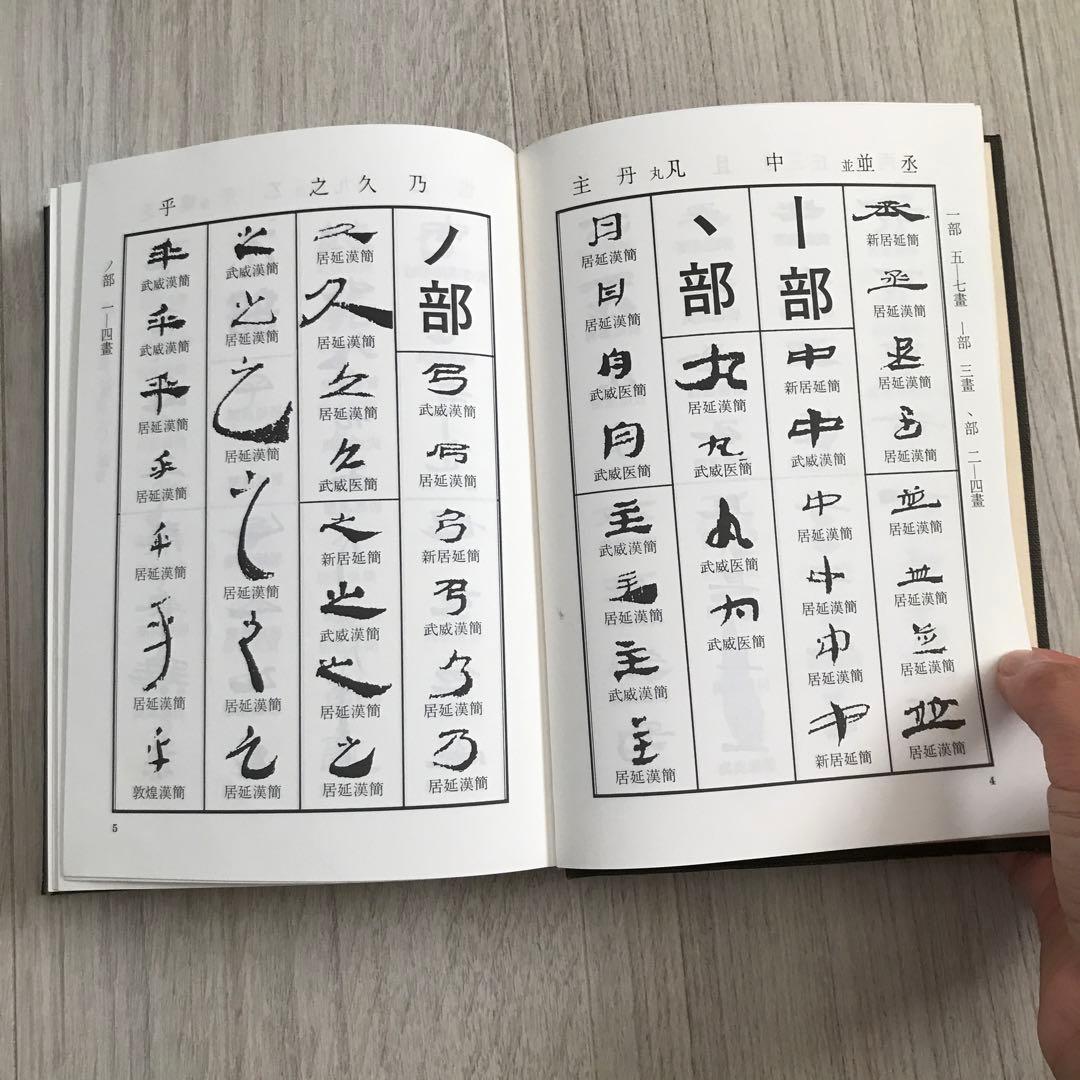 丞 並 並 中 凡 丸 丹 主
一部 五—七畫 丨部 三畫 丶部 二—四畫
丞 新居延簡
丞 居延漢簡
丞 居延漢簡
丞 居延漢簡
並 居延漢簡
並 居延漢簡
並 居延漢簡
並 居延漢簡
丨部
中 新居延簡
中 武威漢簡
中 居延漢簡
中 居延漢簡
中 居延漢簡
中 新居延簡
丶部
丸 居延漢簡
丸 武威医簡
丸 武威医簡
凡 武威医簡
丹 居延漢簡
丹 居延漢簡
丹 武威医簡
丹 武威医簡
主 武威漢簡
主 居延漢簡
主 武威漢簡
主 居延漢簡
4
乃 久 之 乎
丿部
乃 武威漢簡
乃 居延漢簡
乃 新居延簡
乃 武威漢簡
乃 居延漢簡
乃 居延漢簡
久 居延漢簡
久 居延漢簡
久 居延漢簡
久 武威医簡
之 新居延簡
之 武威漢簡
之 居延漢簡
之 居延漢簡
之 武威漢簡
之 居延漢簡
之 居延漢簡
之 居延漢簡
之 居延漢簡
之 居延漢簡
乎 武威漢簡
乎 武威漢簡
乎 居延漢簡
乎 居延漢簡
乎 居延漢簡
乎 居延漢簡
乎 敦煌漢簡
丿部 一—四畫
5